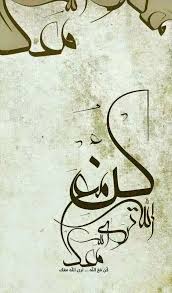 معك
كن مع
الله ترى الله
معك
كن مع الله ... ترى الله معك